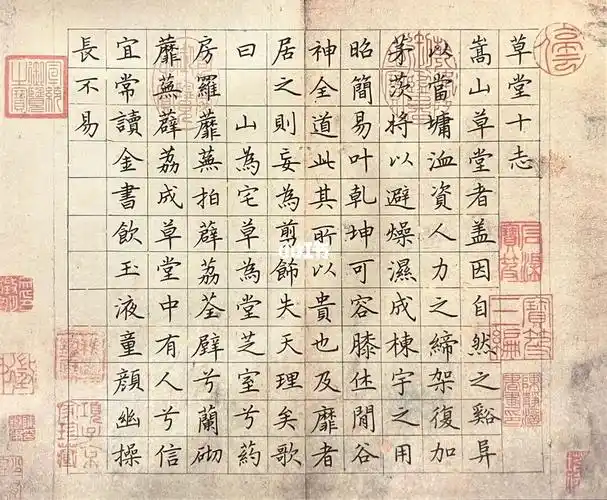 草堂十志
嵩山草堂者盖因自然之谿阜
以當墉洫資人力之締架復加
茅茨將以避燥濕成棟宇之用
昭簡易叶乾坤可容膝休閒谷
神全道此其所以貴也及靡者
居之則妄為剪飾失天理矣歌
曰 山為宅草為堂芝室兮葯
房羅蘼蕪拍薜荔荃壁兮蘭砌
蘼蕪薜荔成草堂中有人兮信
宜常讀金書飲玉液童顏幽操
長不易